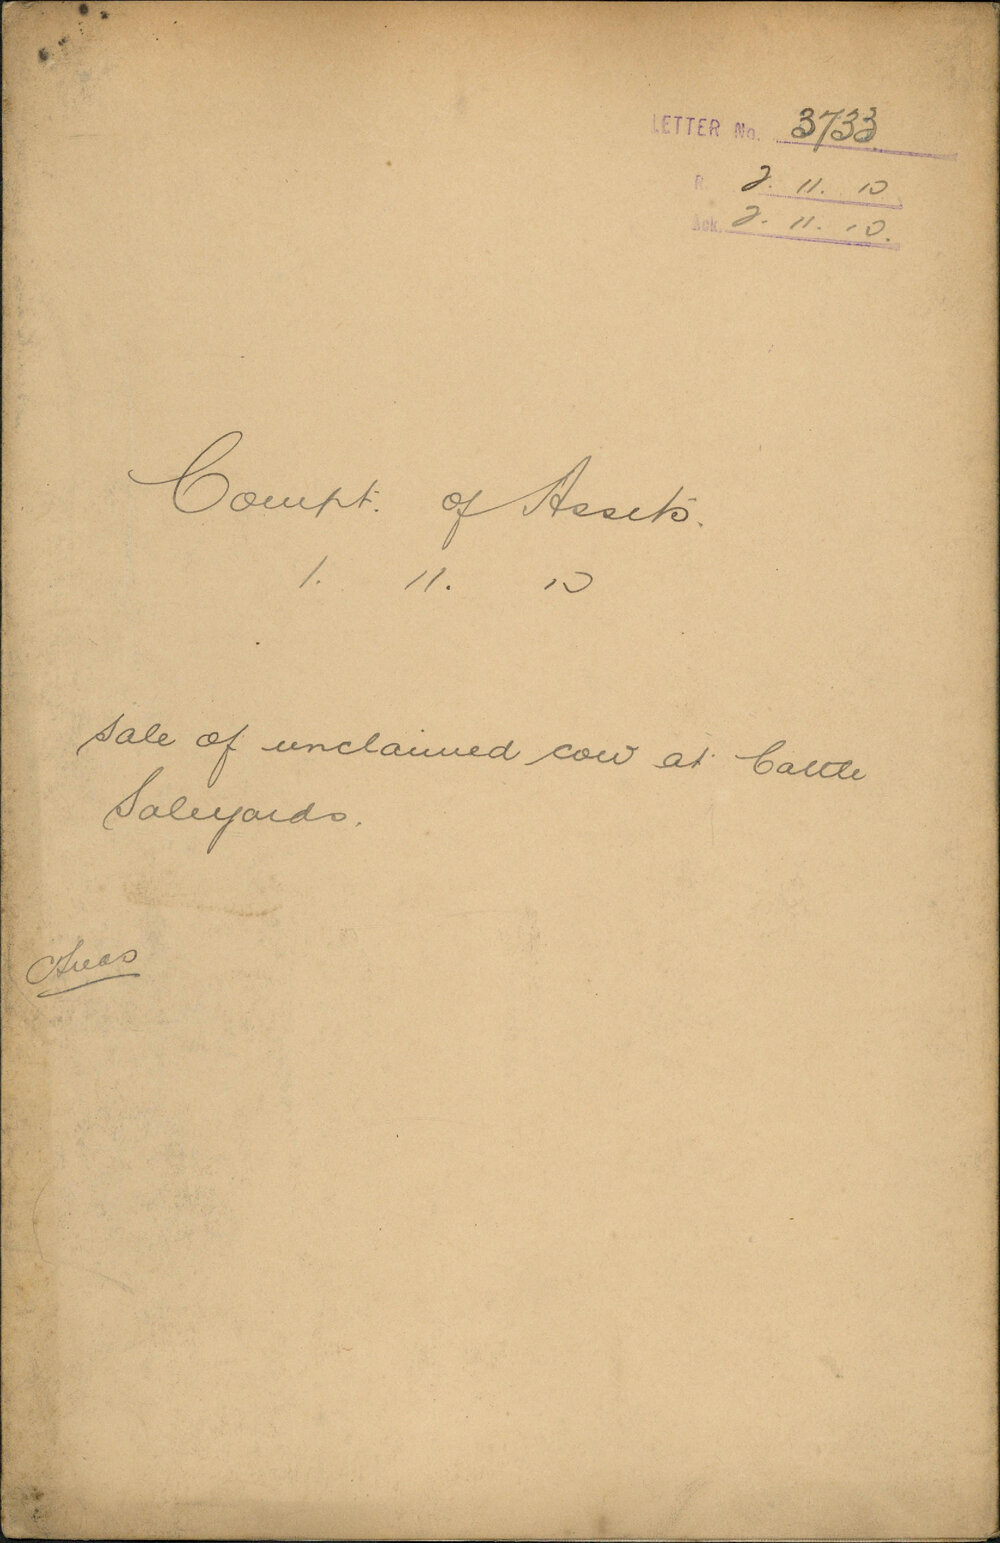 LETTER No. 3733
R. 2. 11. 10.
Ack. 2. 11. 10.
Compt. of Assets.
1. 11. 10
Sale of unclaimed cow at Cattle
Saleyards.